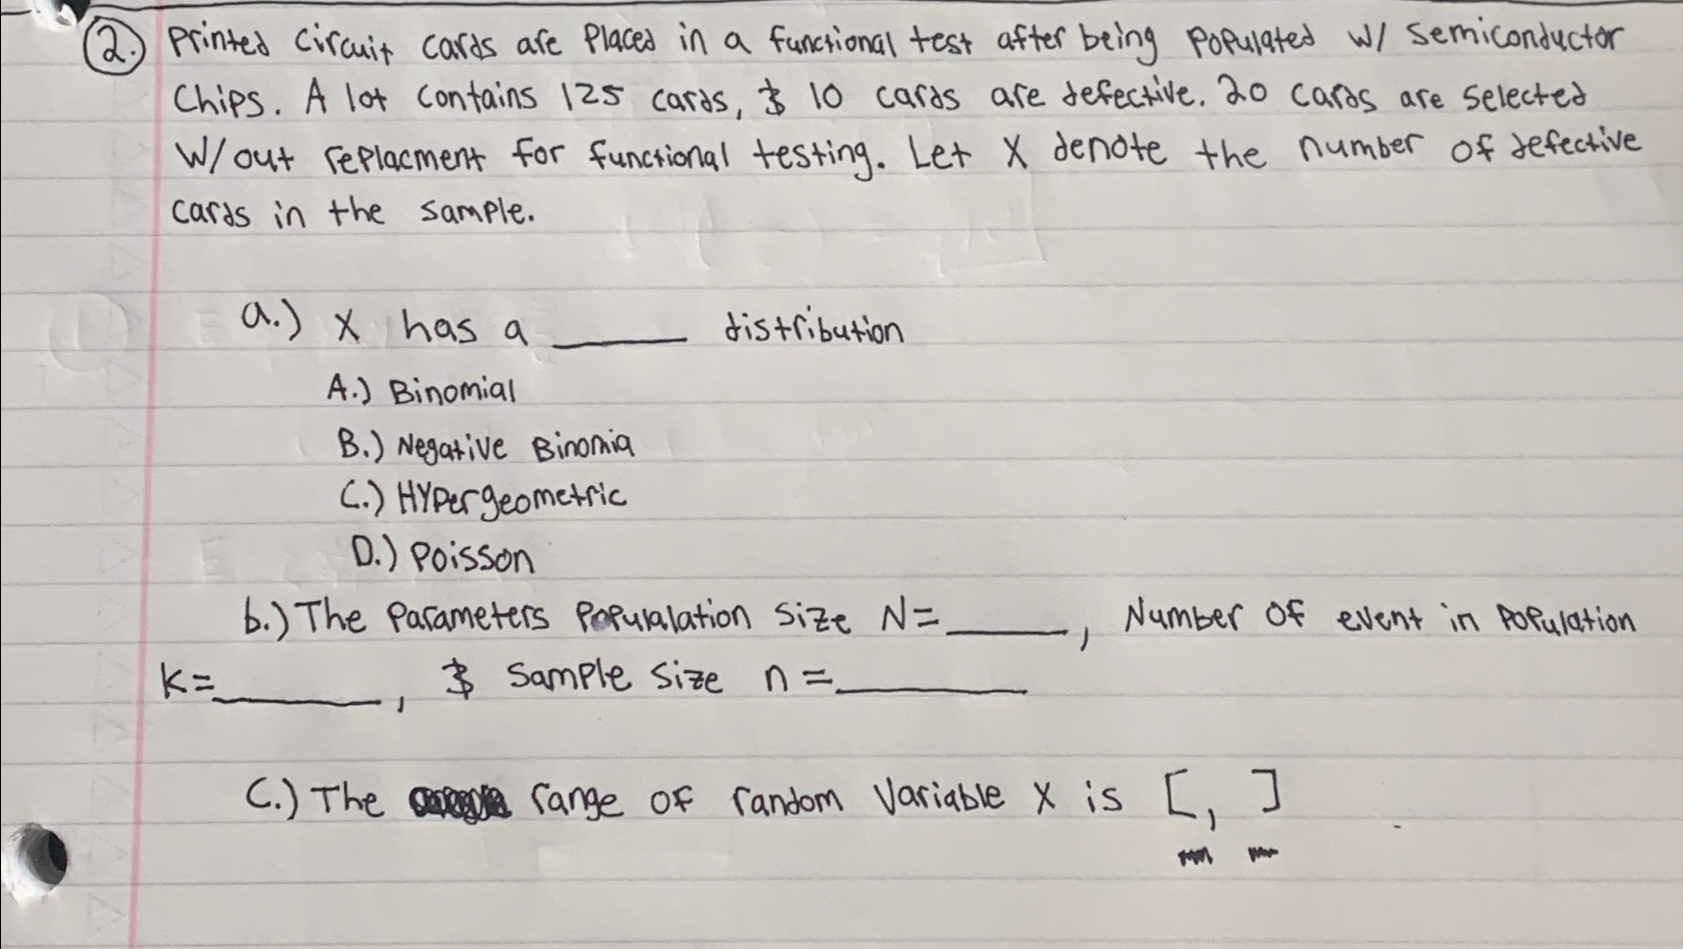 2. Printed Circuit cards are Placed in a functional test after being Populated w/ Semiconductor
Chips. A lot contains 125 cards, & 10 cards are defective. 20 cards are selected
W/out replacment for functional testing. Let X denote the number of defective
cards in the sample.
a.) X has a ____ distribution
A.) Binomial
B.) Negative Binomia
C.) Hypergeometric
D.) Poisson
b.) The Parameters Popuralation Size N=____, Number of event in Population
K=____, & Sample Size n=____
C.) The range of random Variable X is [, ]